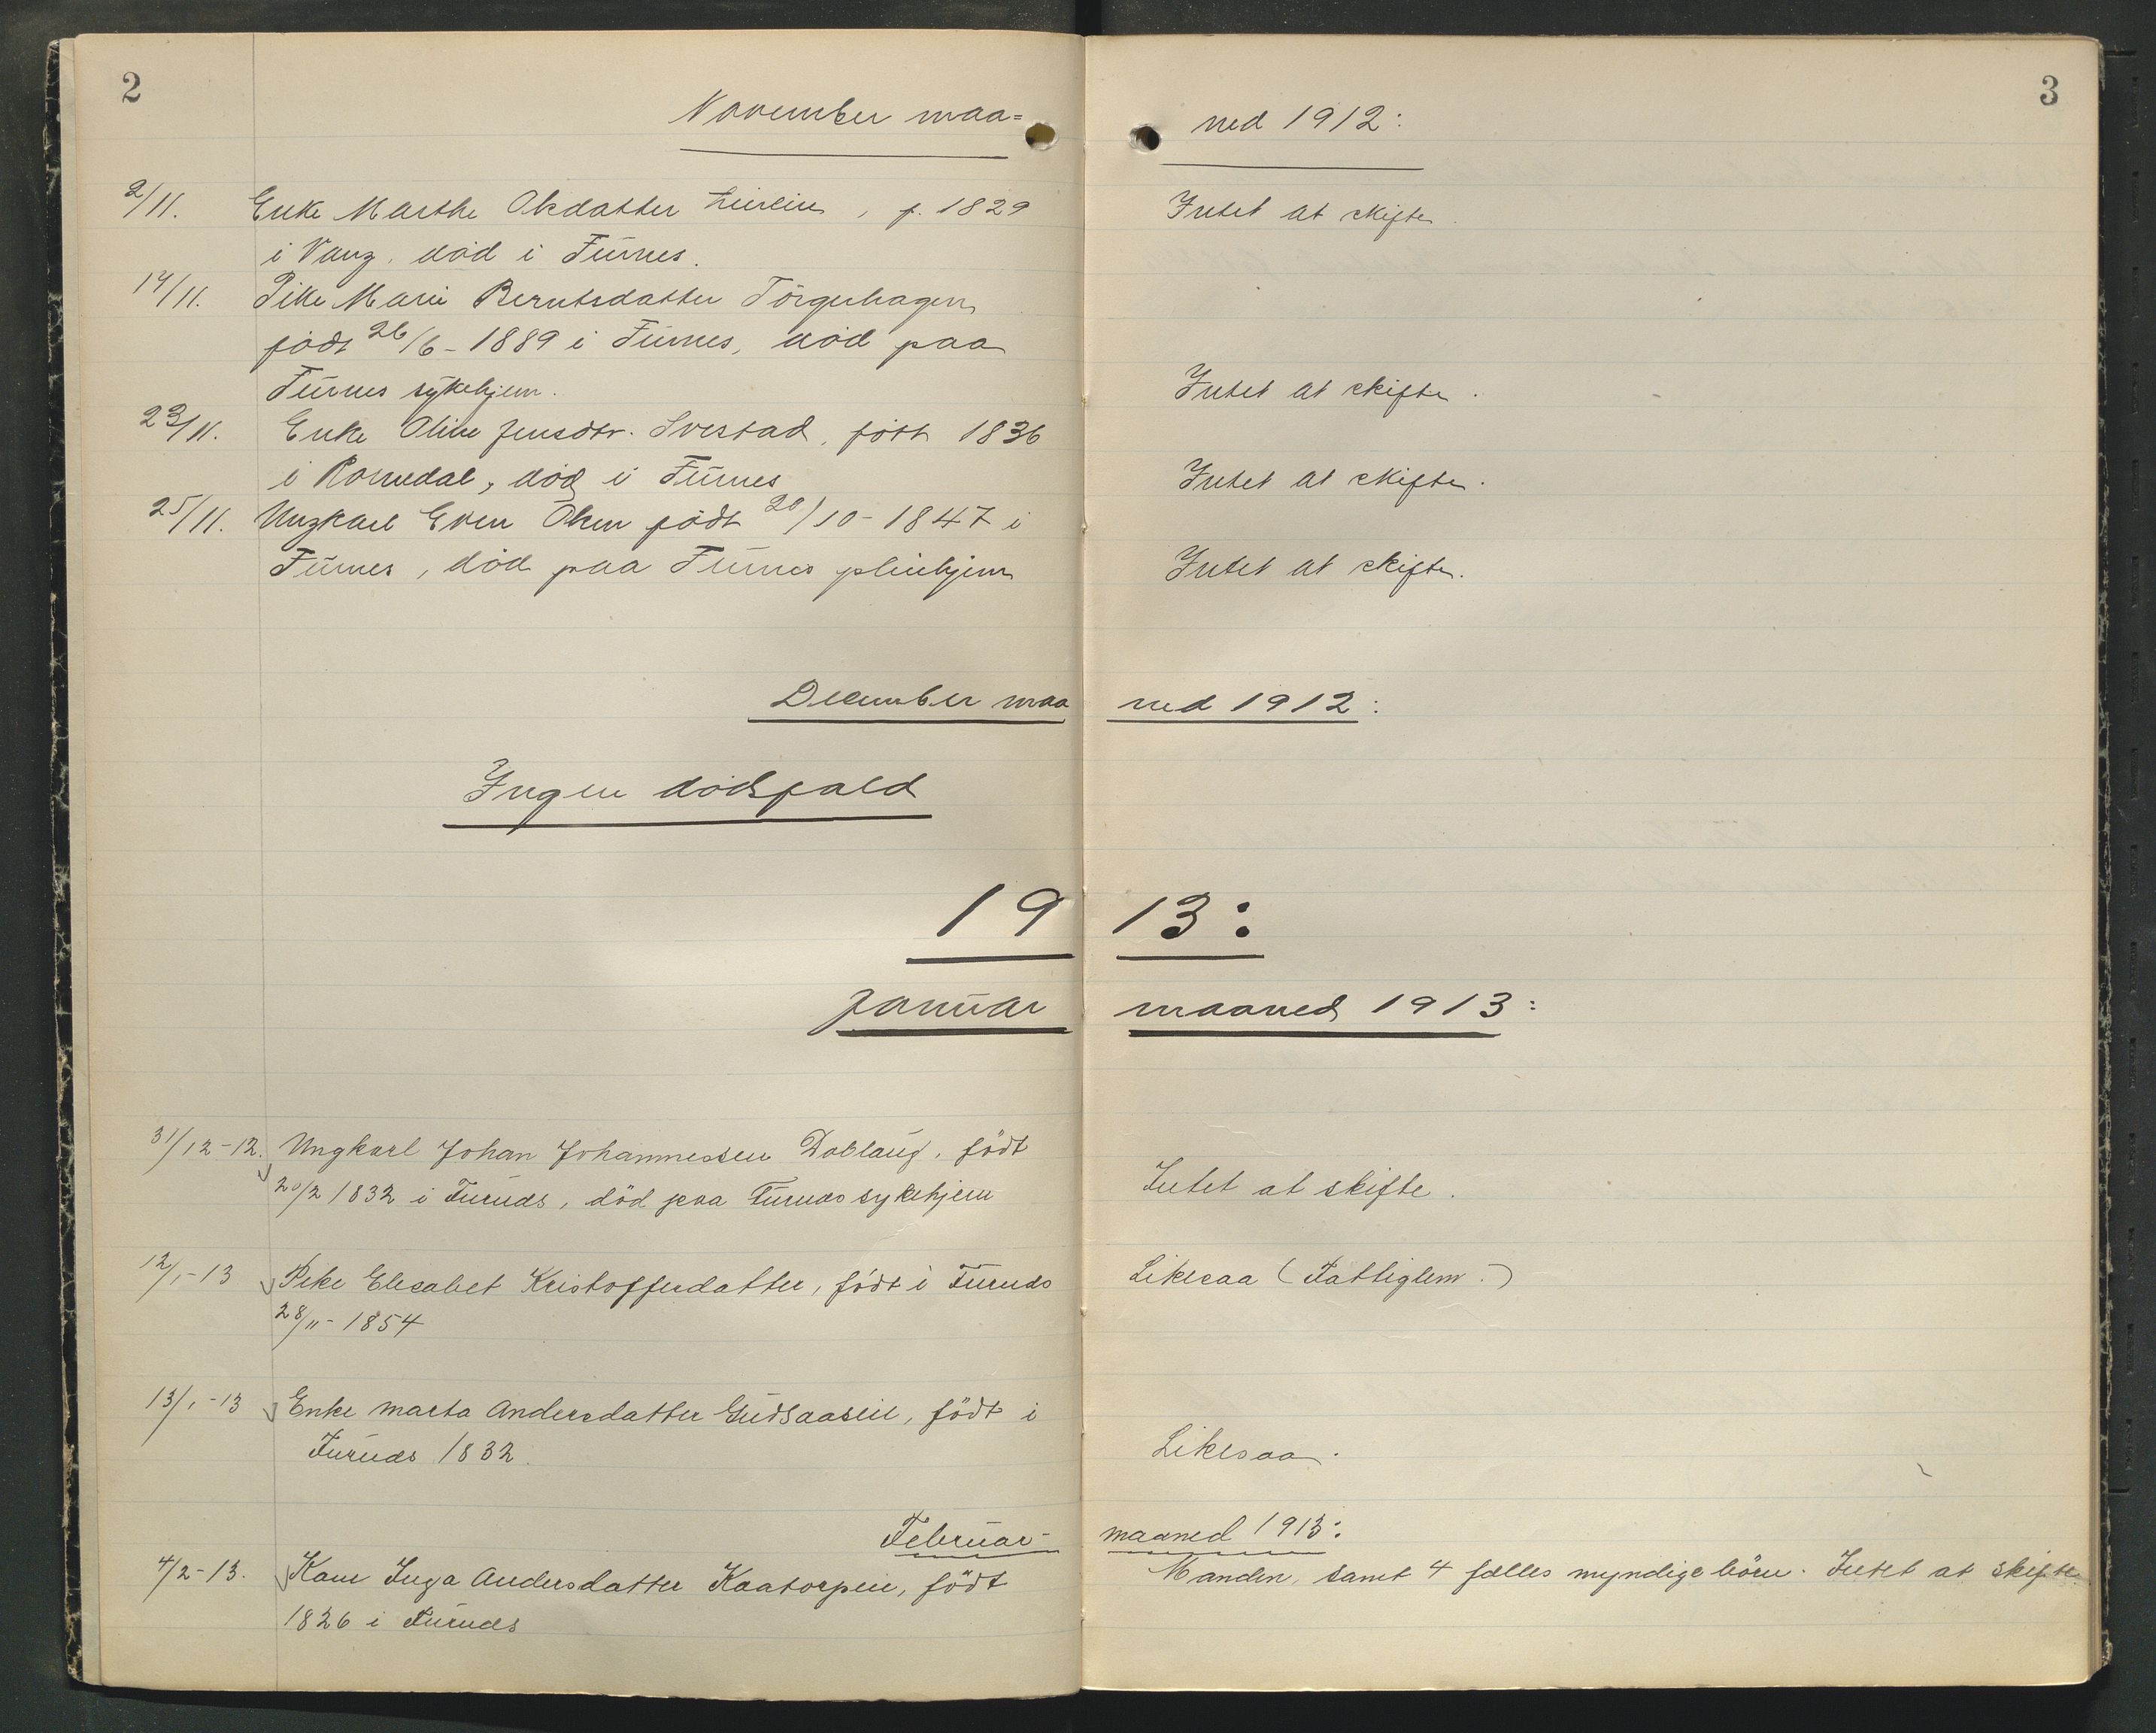 2
3
November maa=
ned 1912:
2/11. Enke Marthe Olsdatter , f. 1829
Intet at skifte.
i Vang, død i Furnes.
14/11. Pike Marie Berntsdatter Torgerhagen
født 26/6-1889 i Furnes, død paa
Furnes sykehjem.
Intet at skifte.
23/11. Enke Oline Jensdtr. Ivestad, født 1836
i Romedal, død i Furnes
Intet at skifte.
25/11. Ungkarl Even Olsen født 20/10-1847 i
Furnes, død paa Furnes pleiehjem
Intet at skifte.
December maa
ned 1912:
Ingen dødsfald
19
13:
Januar
maaned 1913:
31/12-12. Ungkarl Johan Johannessen Doblaug, født
20/2 1832 i Furnes, död paa Furnes sykehjem
Intet at skifte.
12/1-13 Pike Elesabet Kristofferdatter, födt i Furnes
Likesaa (Fattiglem.)
28/11-1854
13/1-13 Enke Marta Andersdatter Gudsaasen, födt i
Furnes 1832.
Likesaa.
Februar-
maaned 1913:
4/2-13. Kone Inga Andersdatter Kaatorpen, födt
Manden, samt 4 fælles myndige börn. Intet at skifte.
1826 i Furnes